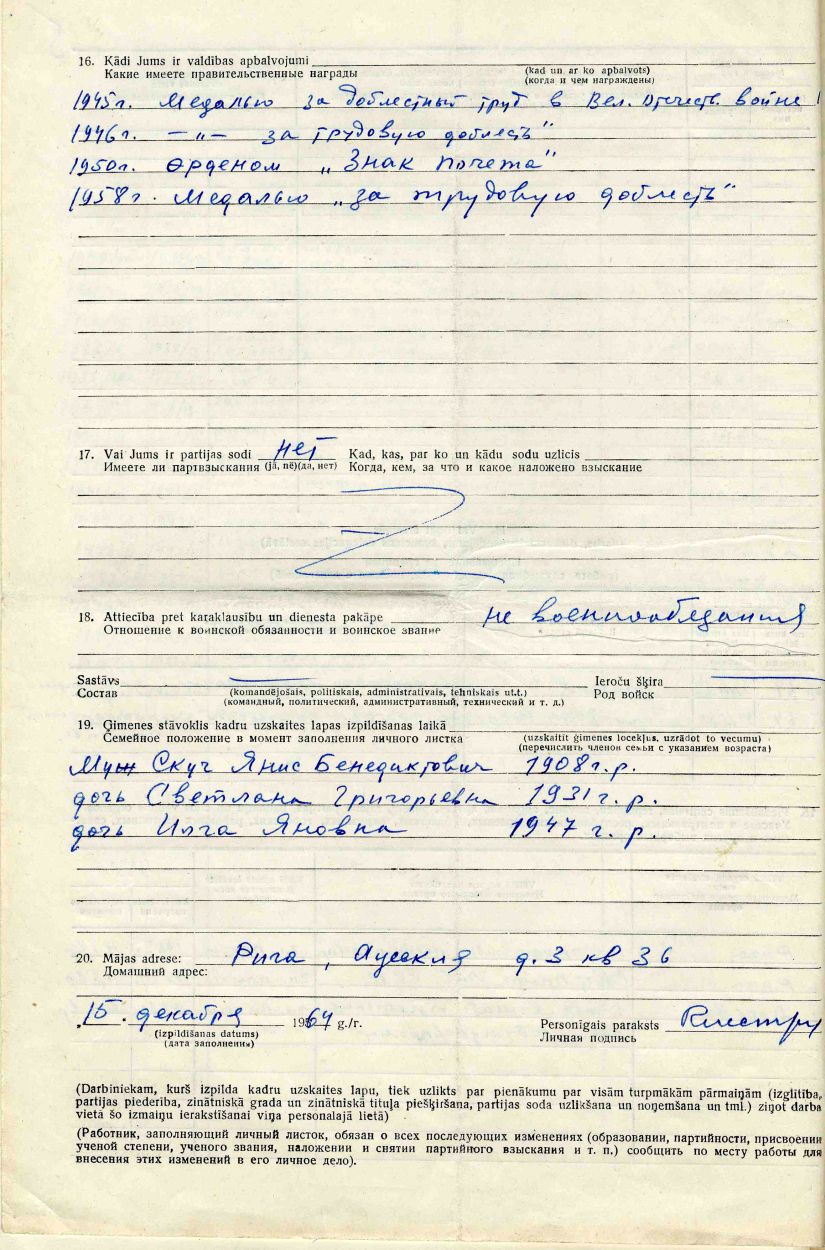 16. Kādi Jums ir valdības apbalvojumi
Какие имеете правительственные награды
(kad un ar ko apbalvots)
(когда и чем награждены)
1945г. Медалью за доблестный труд в Вел. Отечеств. войне
1946г. —"— за трудовую доблесть"
1950г. орденом „Знак Почета"
1958г. Медалью „за трудовую доблесть"
17. Vai Jums ir partijas sodi нет Kad, kas, par ko un kādu sodu uzlicis
Имеете ли партвзыскания (jā, nē)(да, нет) Когда, кем, за что и какое наложено взыскание
18. Attiecība pret karaklausību un dienesta pakāpe не военнообязанная
Отношение к воинской обязанности и воинское звание
Sastāvs Ieroču šķira
Состав (komandējošais, politiskais, administratīvais, tehniskais ut.t.) Род войск
(командный, политический, административный, технический и т. д.)
19. Ģimenes stāvoklis kadru uzskaites lapas izpildīšanas laikā
Семейное положение в момент заполнения личного листка
(uzskaitīt ģimenes locekļus, uzrādot to vecumu)
(перечислить членов семьи с указанием возраста)
Муж Скуч Янис Бенедиктович 1908г.р.
дочь Светлана Григорьевна 1931г.р.
дочь Илга Яновна 1947 г. р.
20. Mājas adrese: Рига, д. 3 кв 36
Домашний адрес:
„15. декабря 1964 g./г.
(izpildīšanas datums)
(дата заполнения)
Personīgais paraksts
Личная подпись
(Darbiniekam, kurš izpilda kadru uzskaites lapu, tiek uzlikts par pienākumu par visām turpmākām pārmaiņām (izglītība,
partijas piederība, zinātniskā grada un zinātniskā tituļa piešķiršana, partijas soda uzlikšana un noņemšana un tml.) ziņot darba
vietā šo izmaiņu ierakstīšanai viņa personalajā lietā)
(Работник, заполняющий личный листок, обязан о всех последующих изменениях (образовании, партийности, присвоении
ученой степени, ученого звания, наложении и снятии партийного взыскания и т. п.) сообщить по месту работы для
внесения этих изменений в его личное дело).